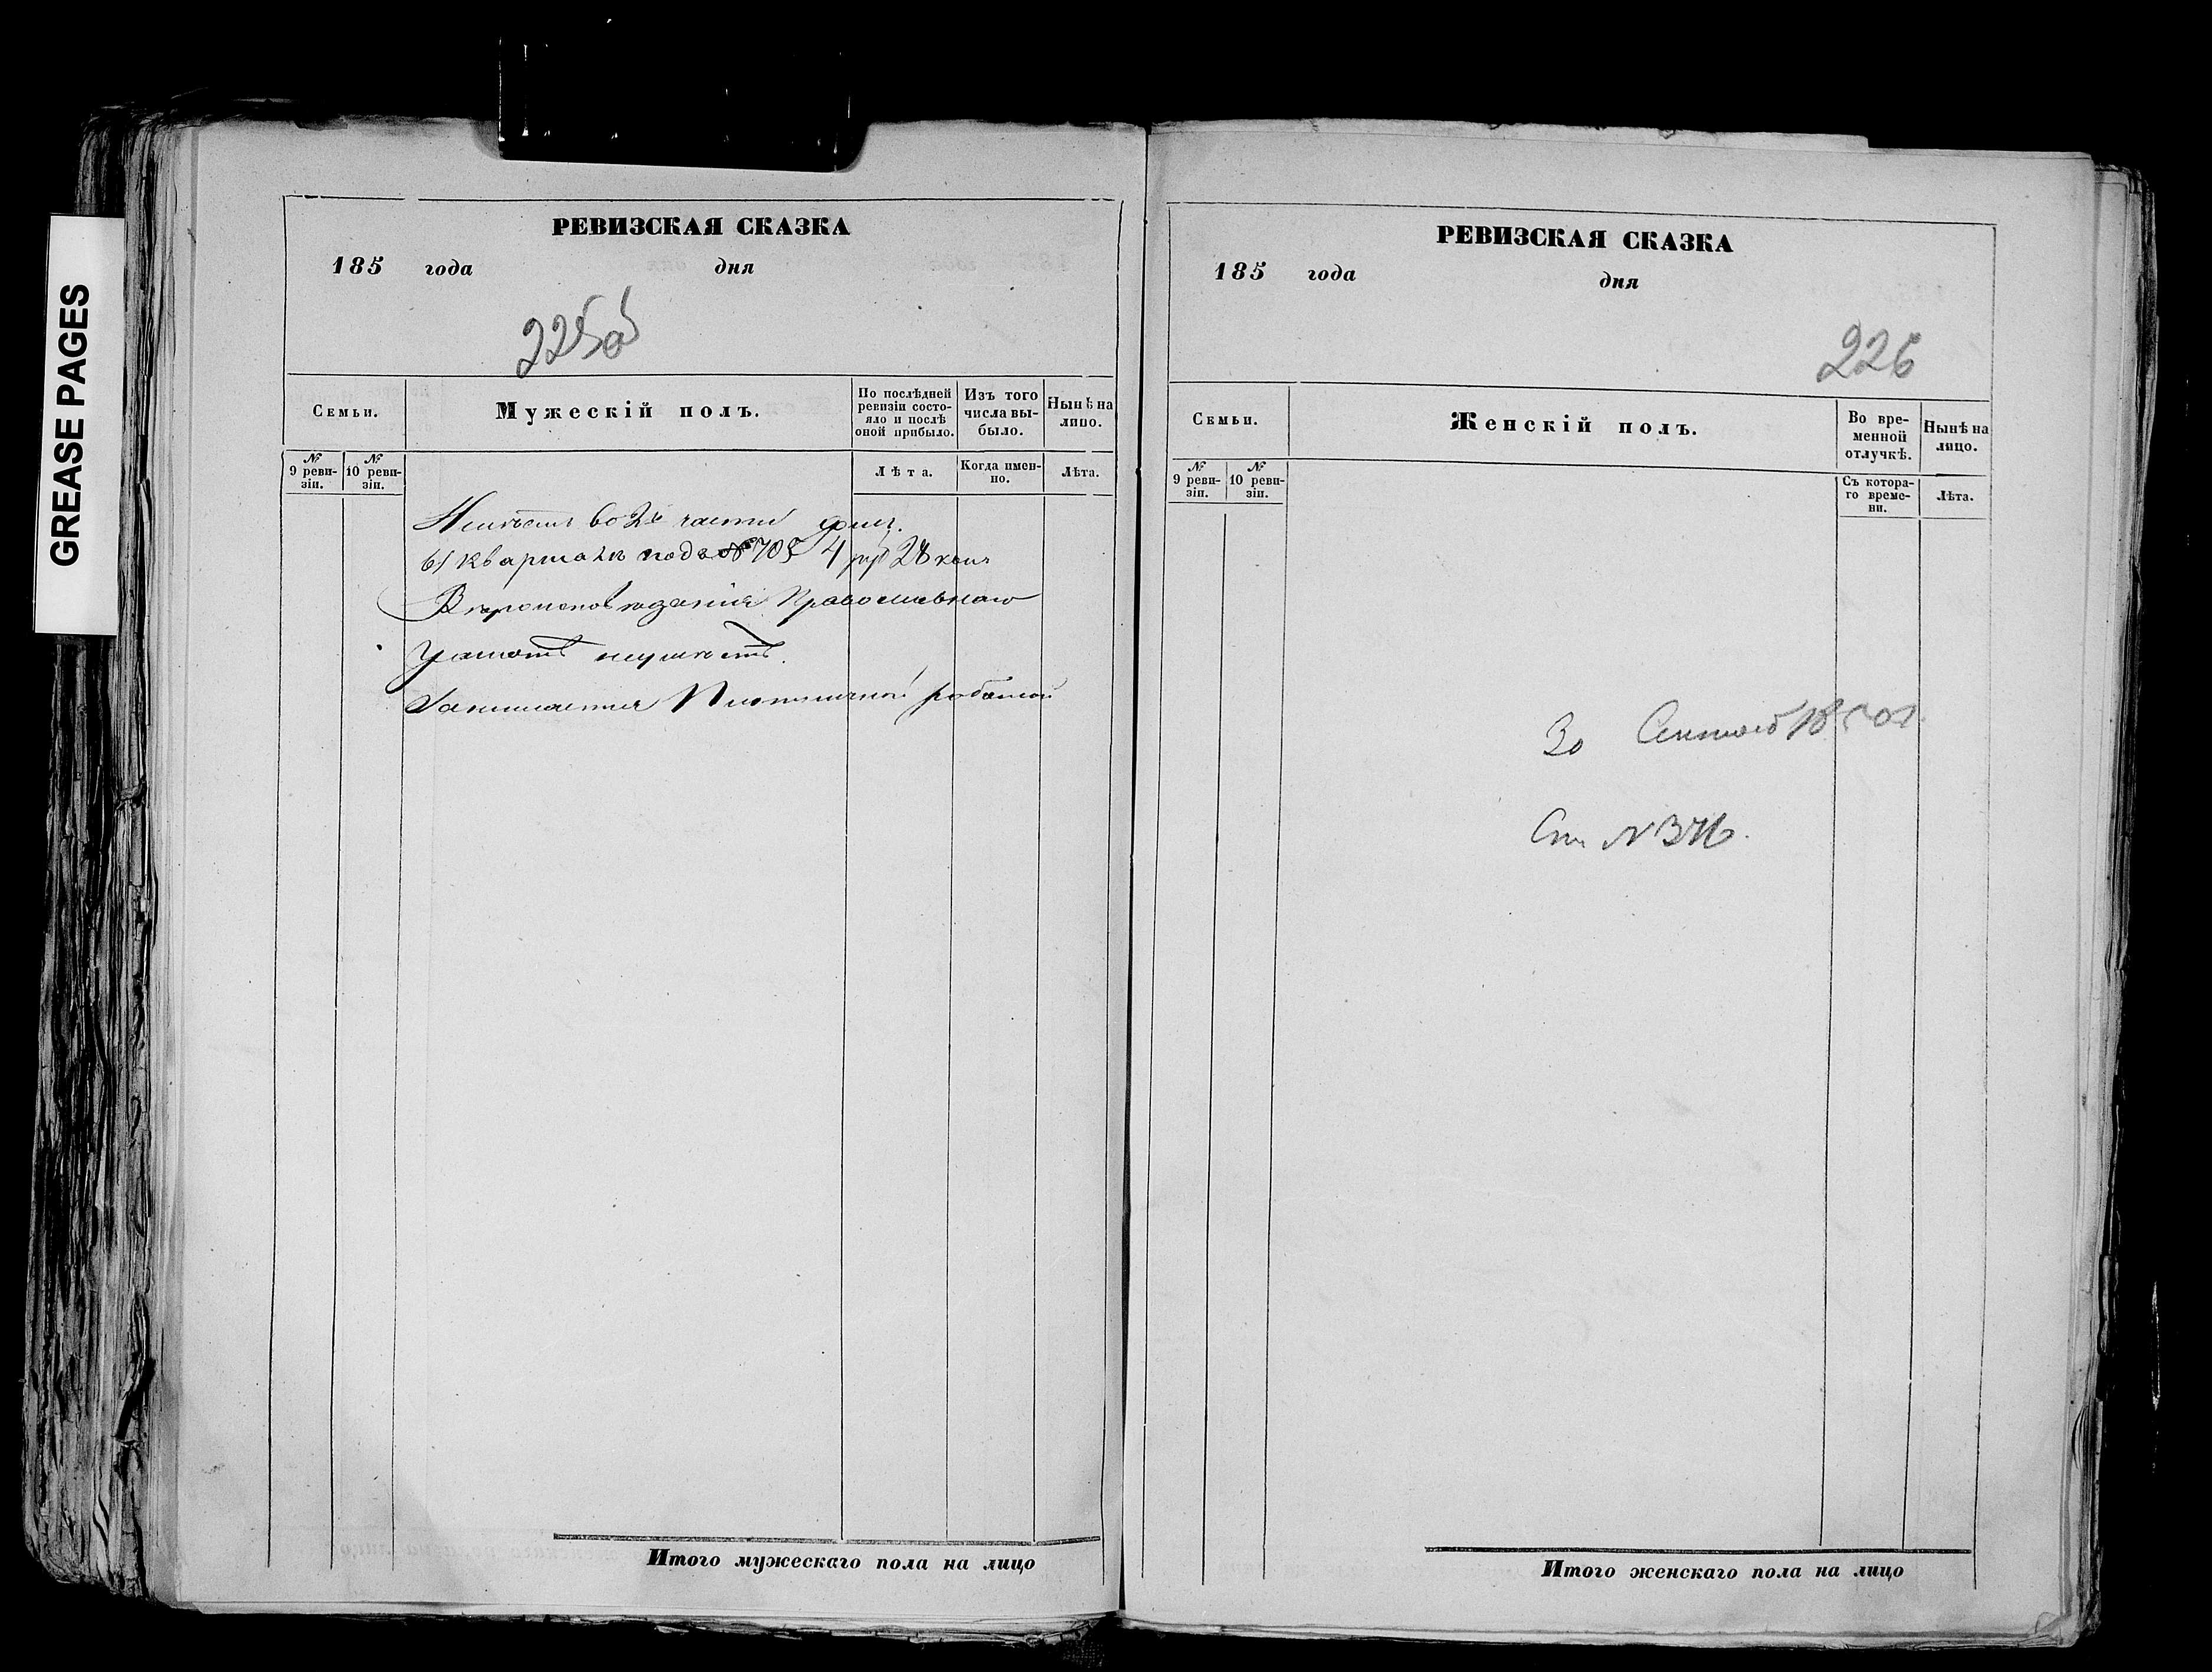 GREASE PAGES
РЕВИЗСКАЯ СКАЗКА
185 года дня
225об
Семьи.
Мужескій полъ.
По послѣдней ревизіи состояло и послѣ оной прибыло.
Изъ того числа выбыло.
Нынѣ на лицо.
№ 9 ревизіи.
№ 10 ревизіи.
Лѣта.
Когда имен-но.
Лѣта.
во 2й части
квартала подъ № 705 4 руб 28 коп
Вѣроисповѣданія Православнаго
Грамотѣ неумѣетъ.
Занимается работой
Итого мужескаго пола на лицо
РЕВИЗСКАЯ СКАЗКА
185 года дня
226
Семьи.
Женскій полъ.
Во вре-менной отлучкѣ.
Нынѣ на лицо.
№ 9 реви-зіи.
№ 10 реви-зіи.
Съ котора-го време-ни.
Лѣта.
30
Ст №
Итого женскаго пола на лицо